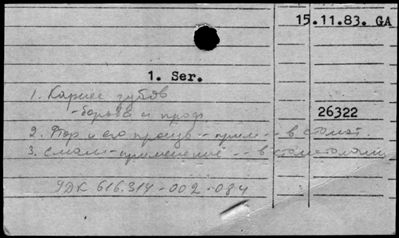 15.11.83. GA
1. Ser.
1. Кариес зубов
- борьба и проф.
26322
2. Фтор и его произв. - прим. -- в стомат.
3. Смолы - применение -- в стоматологии
УДК 616.314-002-084